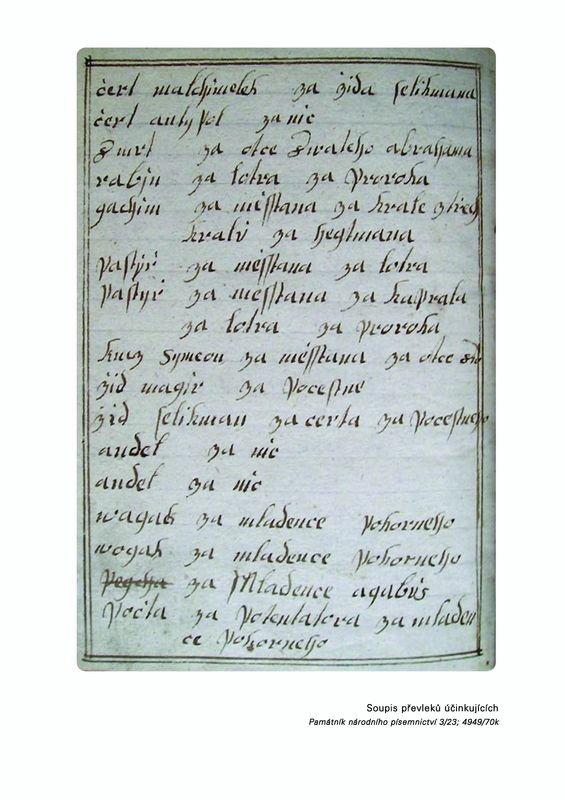 čert malchimelek za žida selikmana
čert antypol za nic
Smrt za otce Swateho abrahama
rabin za lotra za Proroka
gachim za miesstana za krale z třech
kralů za hegtmana
Pastyř za miesstana za lotra
Pastyř za miesstana za kaprala
za lotra za Proroka
knez Symeon za miesstana za otce
žid magir za Pocestne
žid selikman za čerta za Pocestneho
anděl za nic
anděl za nic
wogak za mladence Pokorneho
wogak za mladence Pokorneho
za Mladence agabus
Počta za Potentatora za mladen
ce Pokorneho
Soupis převleků účinkujících
Památník národního písemnictví 3/23; 4949/70k